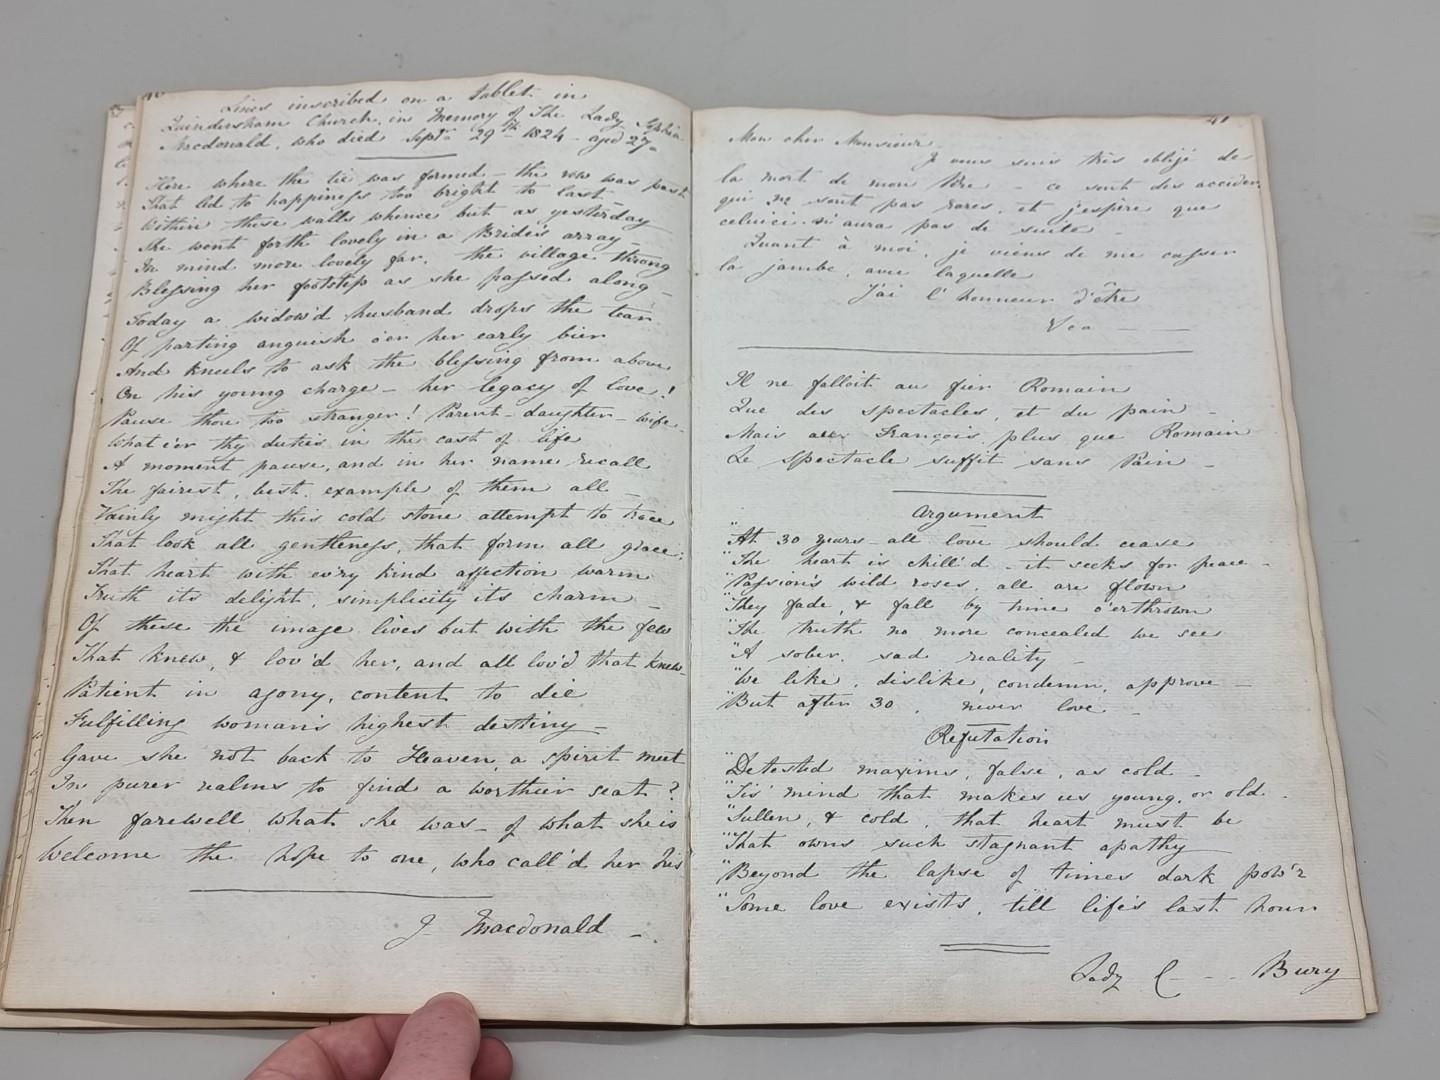 40
Lines inscribed on a tablet in
Church, in Memory of The Lady Sophia
Macdonald, who died Septr 29th 1824 - aged 27 -
Here where the tie was formed - the vow was past
That led to happiness too bright to last
Within these walls whence but as yesterday
She went forth lovely in a Bride's array -
In mind more lovely far, the village throng
Blessing her footstep as she passed along -
Today a widow'd husband drops the tear
Of parting anguish o'er her early bier
And kneels to ask the blessing from above
On his young charge - her legacy of love!
Pause thou, too stranger! Parent - daughter - wife
What e'er thy duties in the cast of life
A moment pause, and in her name recall
The fairest, best example of them all -
Vainly might this cold stone attempt to trace
That look all gentleness, that form all grace;
That heart with ev'ry kind affection warm
Truth its delight, simplicity its charm -
Of these the image lives but with the few
That knew, & lov'd her, and all lov'd that knew -
Patient in agony, content to die
Fulfilling woman's highest destiny -
Gave she not back to Heaven, a spirit meet
In purer realms to find a worthier seat?
Then farewell what she was - of what she is
Welcome the hope to one, who call'd her his
J Macdonald -
41
Mon cher Monsieur
Je vous suis très obligé de
la mort de mon Père - ce sont des acciden
qui ne sont pas rares, et j'espère que
celuici n'aura pas de suite -
Quant à moi, je viens de me casser
la jambe, avec laquelle
J'ai l'honneur d'être
Il ne falloit au fier Romain
Que des spectacles, et du pain -
Mais aux François, plus que Romain
Le spectacle suffit sans Pain -
Argument
"At 30 years - all love should cease
"The heart is chill'd - it seeks for peace -
"Passion's wild roses, all are flown
"They fade, & fall by time o'erthrown
"The truth no more concealed we see
"A sober, sad reality -
"We like, dislike, condemn, approve -
"But after 30, never love. -
Refutation
"Detested maxims, false, as cold -
"Tis' mind that makes us young, or old -
"Sullen, & cold, that heart must be
"That owns such stagnant apathy
"Beyond the lapse of times dark pow'r
"Some love exists, till life's last hour
Lady C - - Bury